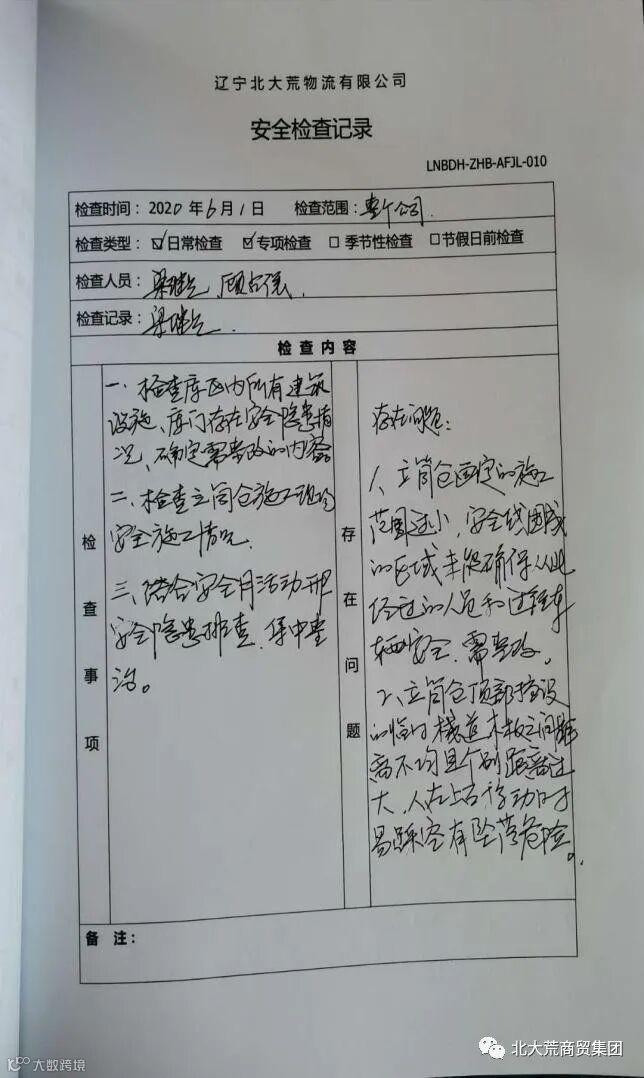 辽宁北大荒物流有限公司
安全检查记录
LNBDH-ZHB-AFJL-010
检查时间: 2020 年 6 月 1 日 检查范围: 整个公司.
检查类型: ☑日常检查 ☑专项检查 □季节性检查 □节假日前检查
检查人员: 梁继
检查记录: 梁继
检查内容
检查事项
一、检查库区内所有建筑
设施、库门存在安全隐患情
况、确定需整改的内容
二、检查立筒仓施工现场
安全施工情况.
三、结合安全月活动开
安全隐患排查、集中整
治。
存在问题
存在问题:
1、立筒仓画定的施工
范围过小,安全线围成
的区域未能确保从此
经过的人员和过往车
辆安全、需整改。
2、立筒仓顶部搭设
的临时栈道木板之间距
离不均且个别距离过
大、人在上面行动时
易踩空有坠落危险。
备 注:
大数跨境
北大荒商贸集团